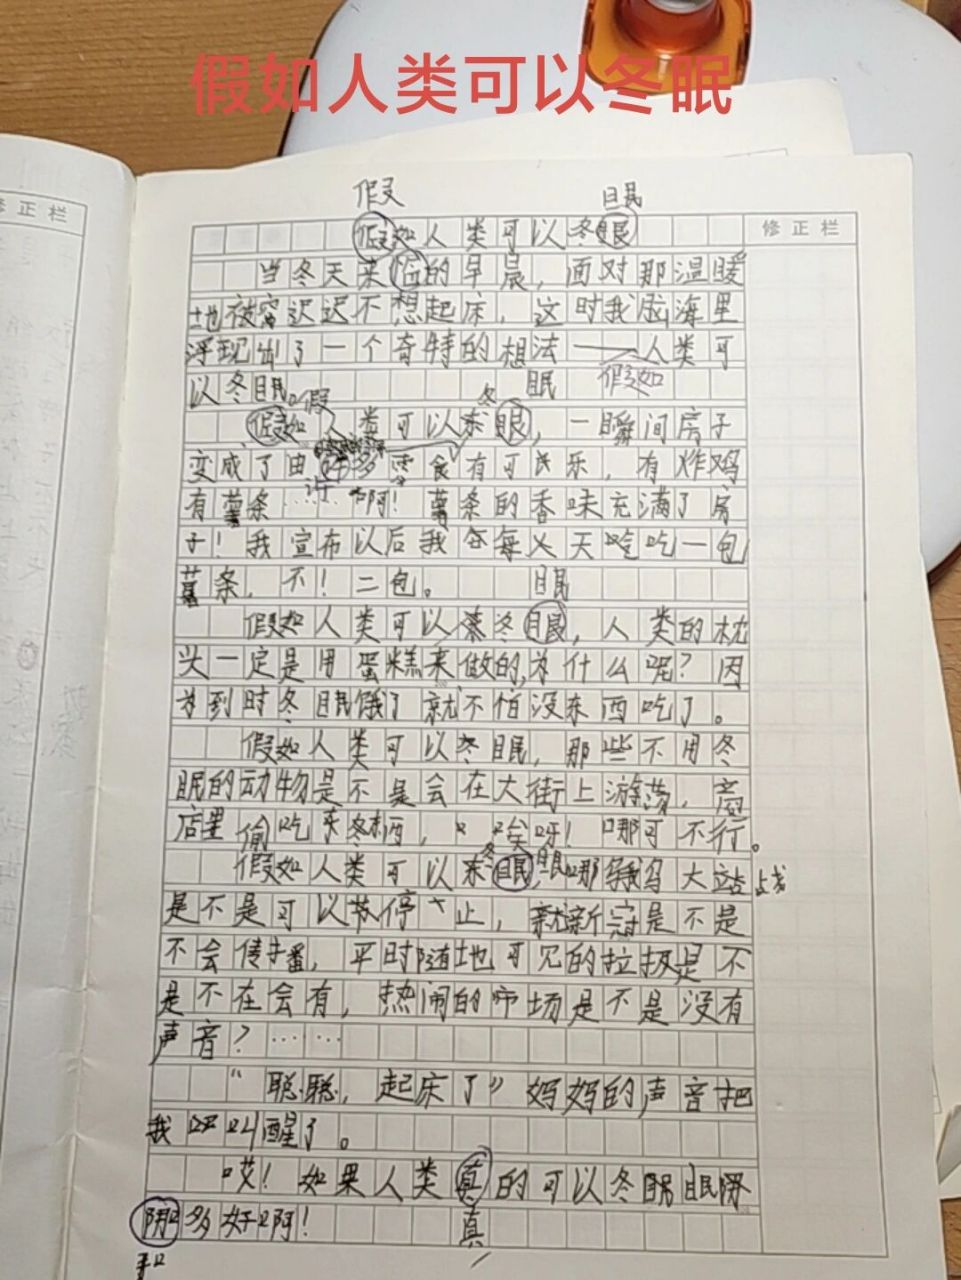 假如人类可以冬眠
修正栏
修正栏
假 眠
假如人类可以冬眠
当冬天来临的早晨，面对那温暖
地被窝迟迟不想起床，这时我脑海里
浮现出了一个奇特的想法——人类可
假如
以冬眠。
假 冬 眠
假如人类可以冬眠，一瞬间房子
变成了由许多零食有可乐，有炸鸡
有薯条……啊！薯条的香味充满了房
子！我宣布以后我每天吃一包
薯条，不！二包。
眠
假如人类可以冬眠，人类的枕
头一定是用蛋糕来做的，为什么呢？因
为到时冬眠饿了就不怕没东西吃了。
假如人类可以冬眠，那些不用冬
眠的动物是不是会在大街上游荡，商
店里偷吃东西，唉呀！那可不行。
冬 眠
假如人类可以冬眠，那俄乌大战
是不是可以停止，新冠是不是
不会传播，平时随地可见的垃圾是不
是不在会有，热闹的市场是不是没有
声音？……
“聪聪，起床了”妈妈的声音把
我叫醒了。
哎！如果人类真的可以冬眠那
多好啊！
真